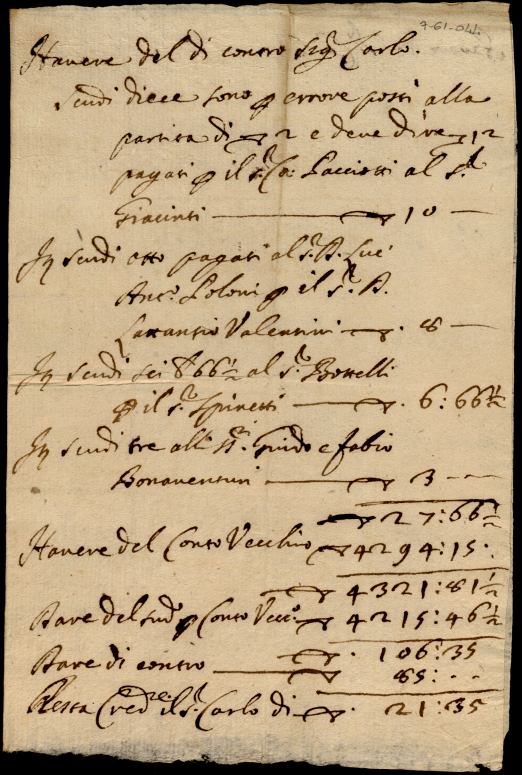 7-61-044
Havere del di contro Sigr Carlo.
Scudi diece sono p errore posti alla
partita di ▽ 2 e deve dire ▽ 12
pagati p il Sr Co: Pacciotti al Sr
Giacinti — ▽ 10 —
In scudi otto pagati al Sr A. Lue
Anto Poloni p il Sr A.
Lattantio Valentini — ▽. 8 —
In scudi sei 866½ al Sr Borelli
p il Sr Spinetti — ▽. 6:66½
In scudi tre alli SSri Guido e fabio
Bonaventuri — ▽ 3 --
▽ 27:66½
Havere del Conto Vecchio ▽ 4294:15.
▽ 4321:81½
Dare del sudo p Conto Vecco ▽ 4215:46½
▽. 106:35
Dare di contro — ▽ 85:..
Resta Credre il Sr Carlo di ▽. 21:35